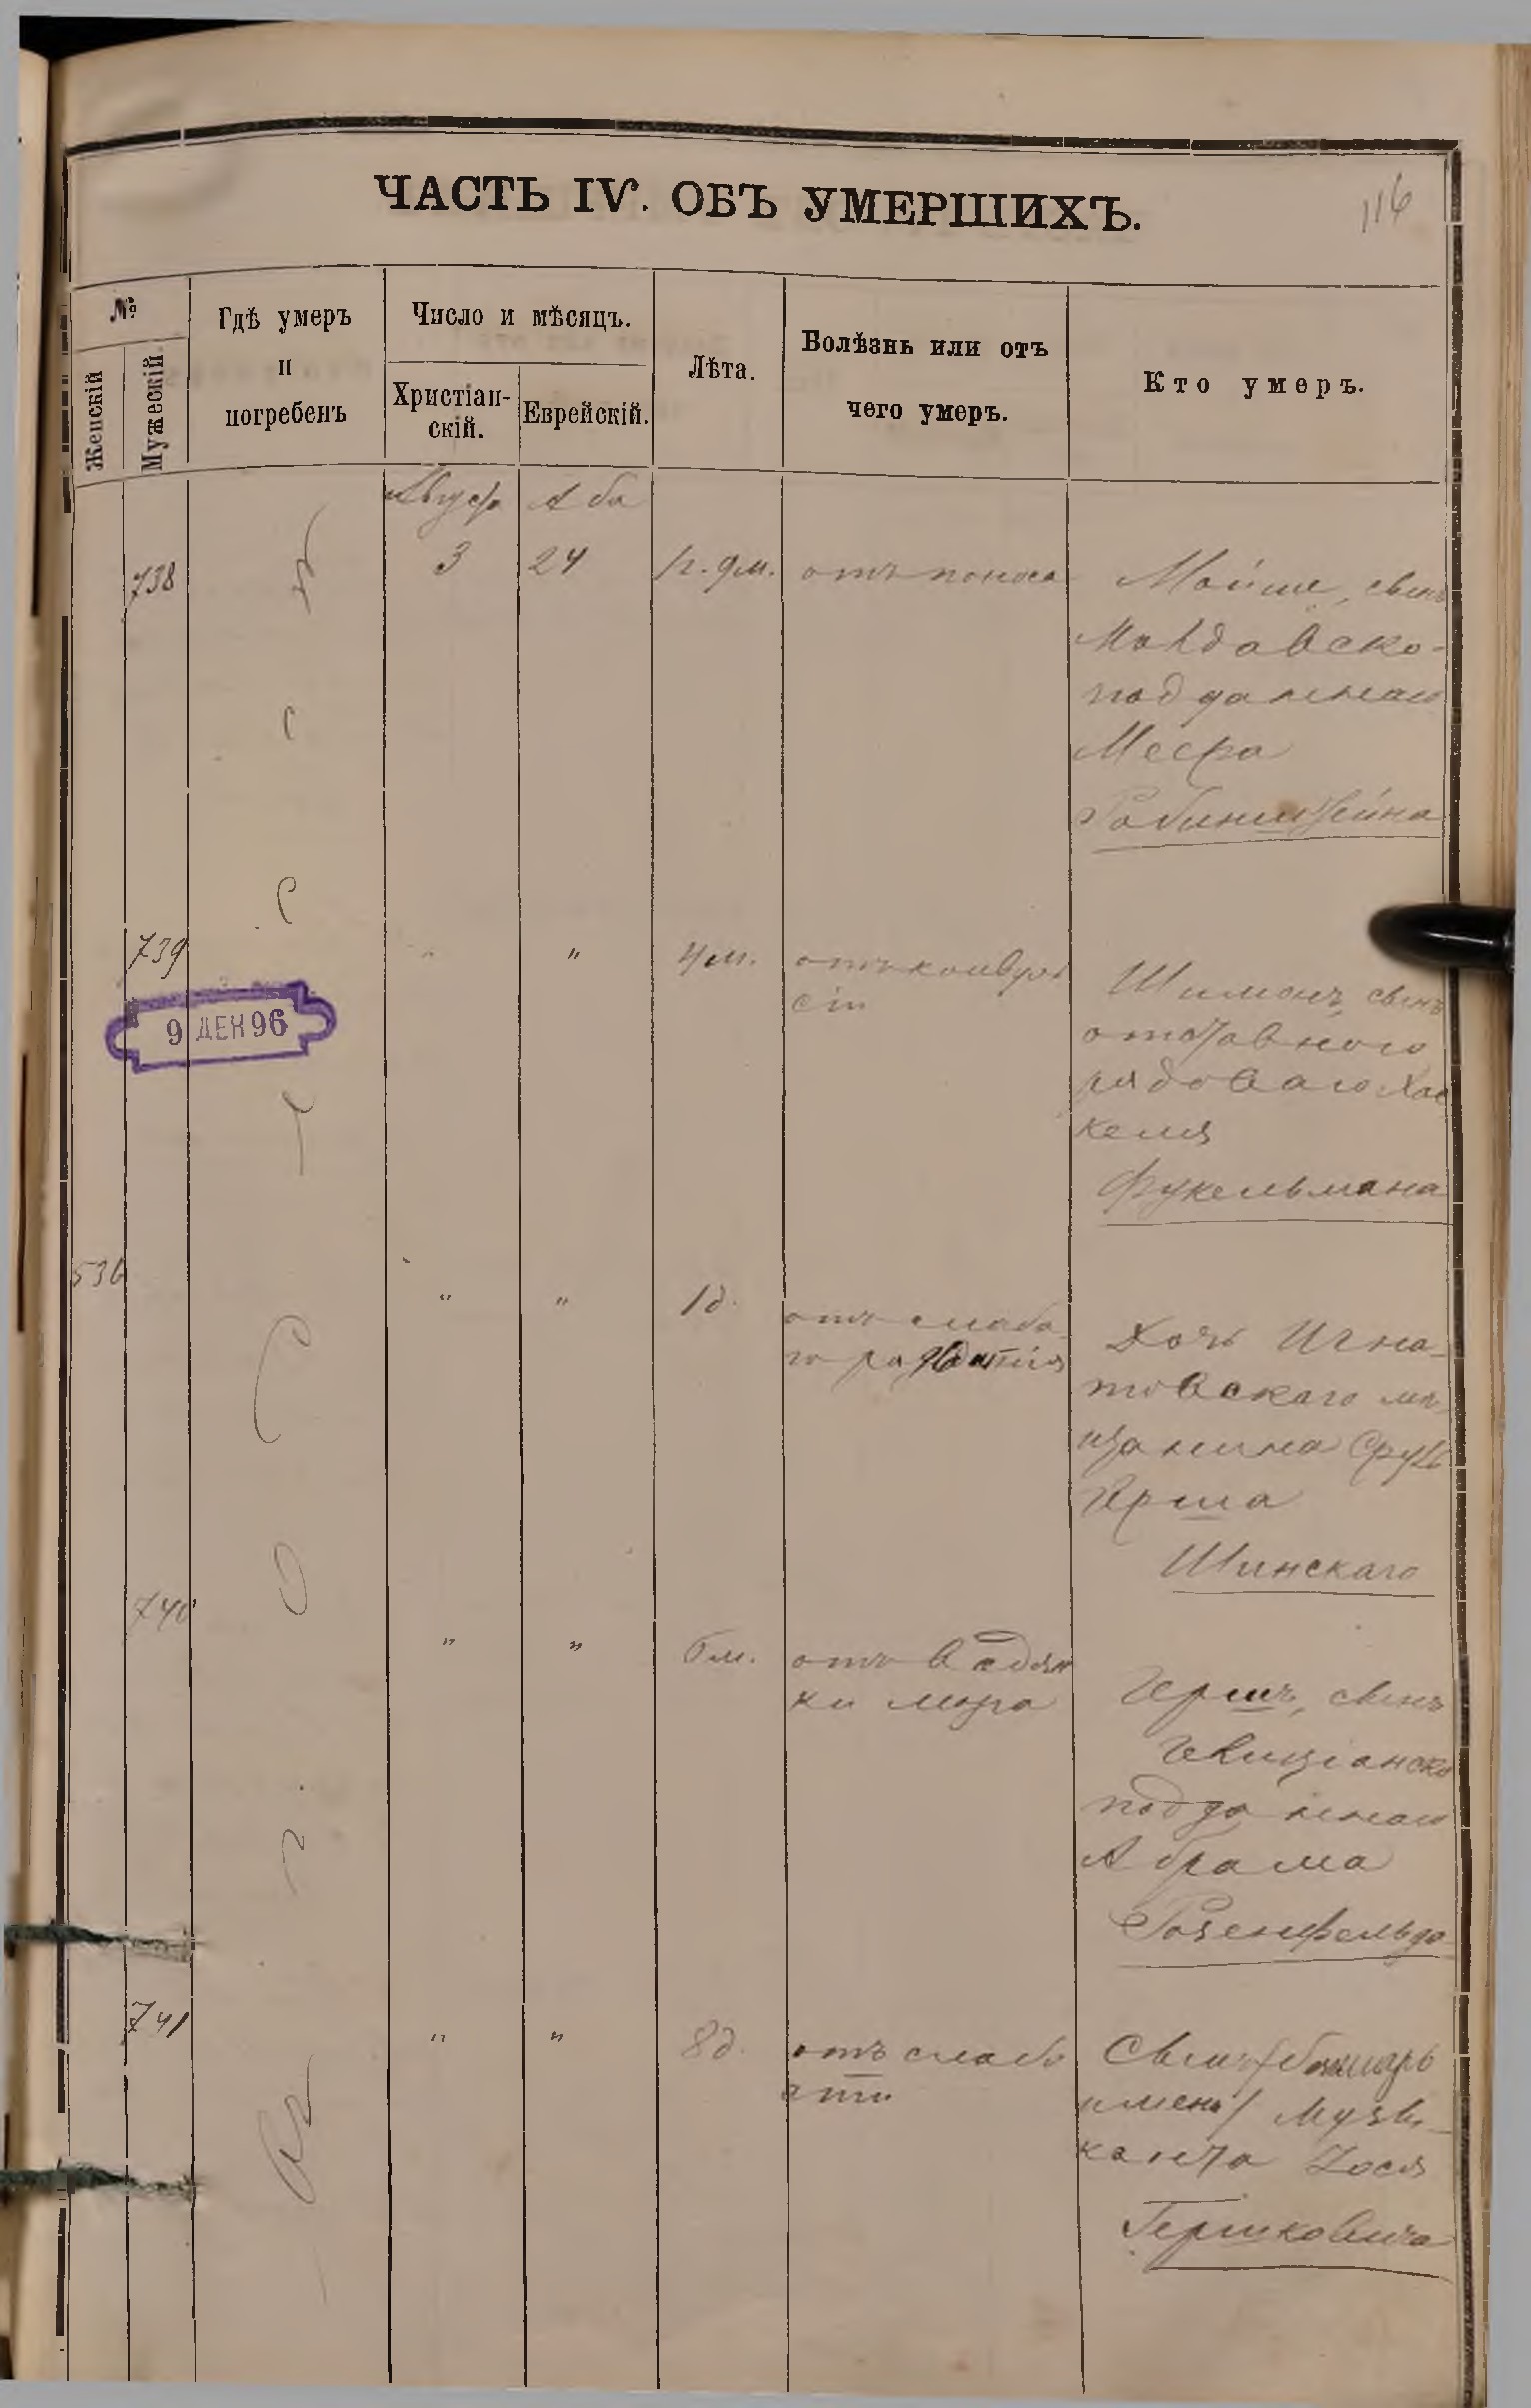 ЧАСТЬ IV. ОБЪ УМЕРШИХЪ.
116
№
Женскій
Мужескій
Гдѣ умеръ
и
погребенъ
Число и мѣсяцъ.
Христіан-
скій.
Еврейскій.
Лѣта.
Болѣзнь или отъ
чего умеръ.
Кто умеръ.
Августа
Аба
738
3
24
1г. 9м.
отъ поноса
Мойше, сынъ
Молдавско-
подданнаго
Меера
Рабинштейна
739
"
"
4м.
отъ конвуль
сіи
Шимонъ, сынъ
отставного
рядоваго Хас
келя
Фукельмана
9 ДЕК 96
536
"
"
1д.
отъ слаба
го развитія
Дочь Игна-
товскаго мѣ-
щанина Сруль
Герша
Шинскаго
740
"
"
6м.
отъ водян
ки мозга
Гершъ, сынъ
Галиціанско
подданнаго
Абрама
Розенфельда
741
"
"
8д.
отъ слабо
сти
Сынъ (безъ
имени) Музы-
канта Іося
Гершковича
Одесса